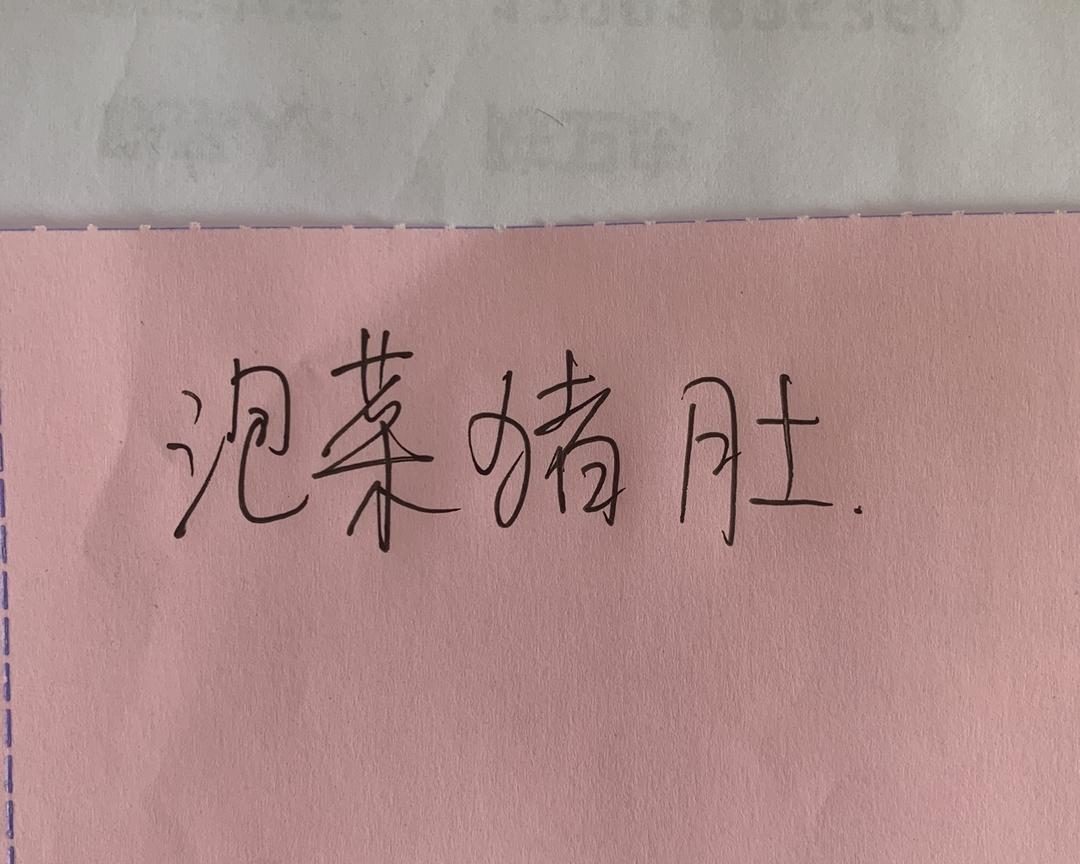 泡菜猪肚.